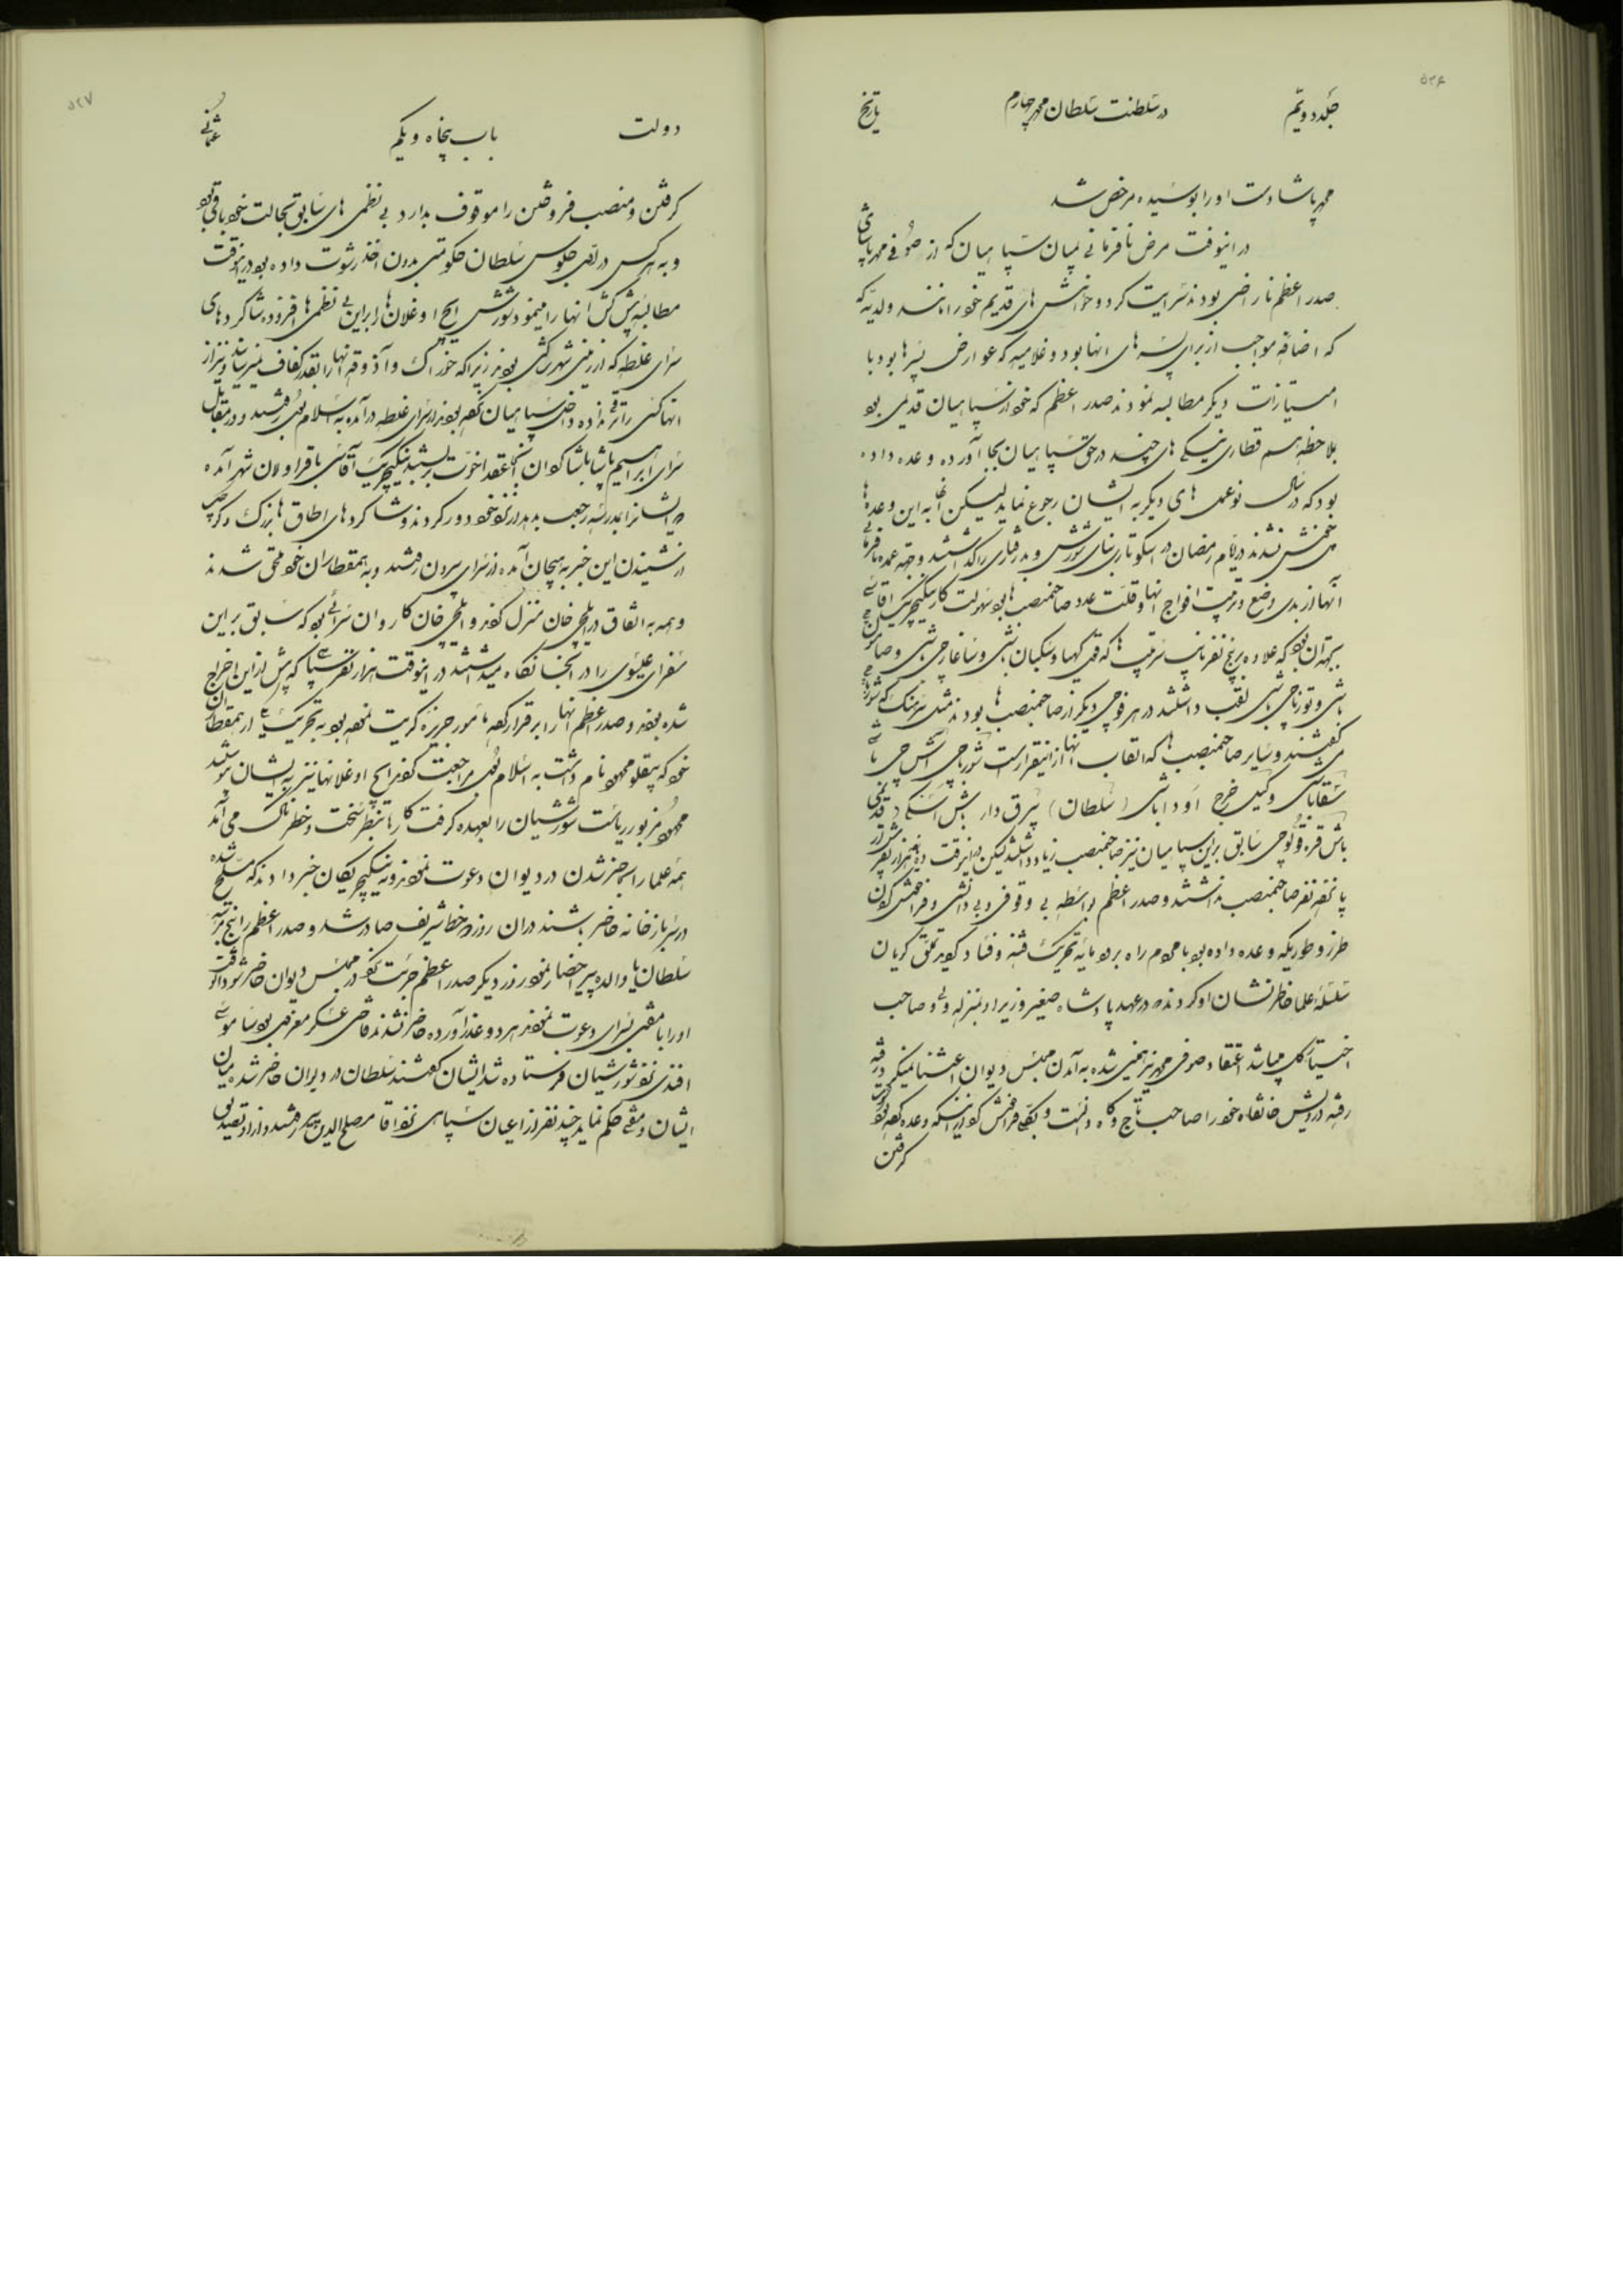 ۵۲۶
جلد دویّم
در سلطنت سلطان محمد چهارم
تاریخ
محمد پاشا دست او را بوسیده مرخص شد
در اینوقت مرض نافرمانی میان سپاهیان که از صوفی محمد پاشای
صدر اعظم ناراضی بودند سرایت کرد و خواهش های قدیم خود را مانند ولدیّه که
که اضافه مواجب از برای پسرهای انها بود و غلامیه که عوارض پسرها بود با
امتیازات دیگر مطالبه نمودند صدر اعظم که خود از سپاهیان قدیمی بود
بملاحظه هم قطاری نیکی های چند در حق سپاهیان بجا آورده وعده داده
بود که در سال نو عملهای دیگر به ایشان رجوع نماید لیکن آنها به این وعده ها
خوش نشدند در ایام رمضان در اسکوتاری بنای شورش و بدرفتاری را گذاشتند و جهة عمده نافرمانی
آنها از بدی وضع و تربیت افواج انها و قلت عدد صاحبمنصب ها بود سهولت کار ینگیچریک آقاسی
بجهة آن بود که علاوه بر پنج نفر نایب سرتیپ ها که قول کهیا و سکبان باشی و ساغارجی باشی و صامسونجی
باشی و تورناچی باشی لقب داشتند در هر فوجی دیگر از صاحبمنصب ها بودند مثل سرهنگ که شورباجی
میگفتند و سایر صاحبمنصب ها که القاب انها از اینقرار است شورباجی آش چی باشی
سقاباشی وکیل خرج اوداباشی (سلطان) بیرق دار باش اسکی (قدیمی)
باش قره قولوچی سابق بر این سپاهیان نیز صاحبمنصب زیاد داشتند لیکن در اینوقت ده هزار نفر بیش از
پانصد نفر صاحبمنصب نداشتند و صدر اعظم بواسطه بی وقوفی و بی دانشی و فراموش کردن
طرز و طوریکه وعده داده بود با مردم راه برود مایه تحریک فتنه و فساد گردید تملق گویان
سلسله علما خاطرنشان او کردند که در عهد پادشاه صغیر وزیر او بمنزله ولی و صاحب
اختیار کل میباشد اعتقاد صوفی محمد نیز همین شده به آمدن مجلس دیوان اعتنا نمیکرد رفته
رفته درویش خانقاه خود را صاحب تاج و گاه دانست و بکلی فراموش کرد از اینکه وعده کرده بود رشوت
گرفتن
۵۲۷
دولت
باب پنجاه و یکم
عثمانی
گرفتن و منصب فروختن را موقوف بدارد بی نظمی های سابق بحالت خود باقی بود
و به هر کس در اوّل جلوس سلطان حکومتی بدون اخذ رشوت داده بود در اینوقت
مطالبه پیش کش از انها را مینمود و شورش ایچ اوغلان ها را بر این بی نظمی ها افزوده شاگردهای
سرای غلطه که از زمنی شهر رگی بودند زیرا که خوراک و آذوقه انها را بقدر کفاف نمیرساندند و نیز از
انها کسی را ترقی نداده داخل سپاهیان نکرده بودند از سرای غلطه درآمده به اسلامبول رفتند و در مقابل
سرای ابراهیم پاشا با شاگردان آنجا عقد اخوّت بر بستند ینگیچریک آقاسی با قراولان شهر آمده
که ایشانرا بمدرسه رجعت بدهد از نزد خود دور کردند و شاگردهای اطاق های بزرگ و کوچک
از شنیدن این خبر به هیجان آمده از سرای بیرون رفتند و به همقطاران خود ملحق شدند
و همه به اتفاق در ایلچی خان منزل کردند و ایلچی خان کاروان سرائی بود که سابق بر این
سفرای عیسوی را در آنجا نگاه میداشتند در اینوقت هزار نفر سپاهی که پیش از این اخراج
شده بودند و صدر اعظم انها را برقرار کرده مأمور جزیره کریت نموده بود به تحریک یکی از همقطاران
خود که پیقلو محمود نام داشت به اسلامبول مراجعت کردند ایچ اوغلانها نیز به ایشان پیوستند
محمود مزبور ریاست شورشیان را بعهده گرفت کارها بنظر سخت و خطرناک می آمد
همه علما را بحاضر شدن در دیوان دعوت نمودند و به ینگیچریکان خبر دادند که مسلّح شده
در سربازخانه حاضر باشند در ان روز دو خط شریف صادر شد و صدر اعظم را پنج مرتبه
سلطان یا والده پیر احضار نمود روز دیگر صدر اعظم جرئت کرد در مجلس دیوان حاضر شود آنوقت
او را با مفتی بسرای دعوت نمودند هر دو عذر آورده حاضر نشدند قاضی عسکر معزولی بود موسی
افندی نزد شورشیان فرستاده شد ایشان گفتند سلطان در دیوان حاضر شده میان
ایشان و مفتی حکم نماید چند نفر از اعیان سپاهی نزد اقا مصلح الدین پیر رفتند و از او تصدیقی